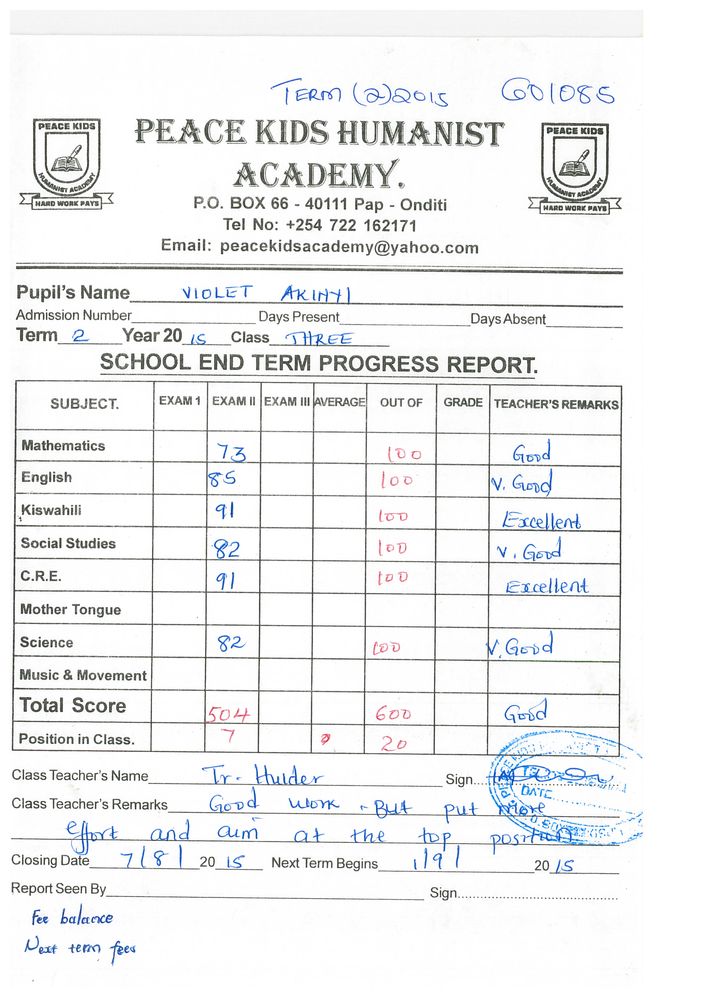 TERM (2) 2015 G01085
PEACE KIDS
HUMANIST ACADEMY
HARD WORK PAYS
PEACE KIDS HUMANIST
ACADEMY.
PEACE KIDS
HUMANIST ACADEMY
HARD WORK PAYS
P.O. BOX 66 - 40111 Pap - Onditi
Tel No: +254 722 162171
Email: peacekidsacademy@yahoo.com
Pupil's Name VIOLET AKINYI
Admission Number Days Present Days Absent
Term 2 Year 20 15 Class THREE
SCHOOL END TERM PROGRESS REPORT.
SUBJECT. EXAM 1 EXAM II EXAM III AVERAGE OUT OF GRADE TEACHER'S REMARKS
Mathematics 73 100 Good
English 85 100 V. Good
Kiswahili 91 100 Excellent
Social Studies 82 100 V. Good
C.R.E. 91 100 Excellent
Mother Tongue
Science 82 100 V. Good
Music & Movement
Total Score 504 600 Good
Position in Class. 7 20
Class Teacher's Name Tr. Hulder Sign.
DATE
Class Teacher's Remarks Good work. But put more
effort and aim at the top position
Closing Date 7/8/ 20 15 Next Term Begins 1/9/ 20 15
Report Seen By Sign
Fee balance
Next term fees